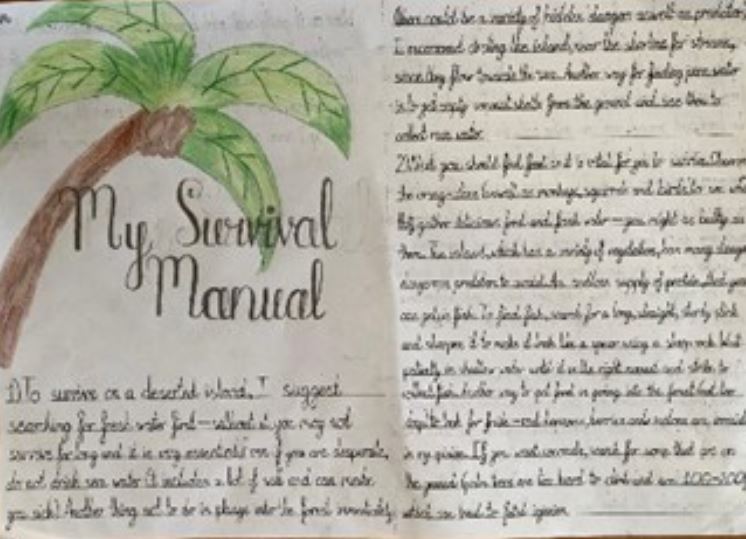 My Survival
Manual
1) To survive on a deserted island, I suggest
searching for fresh water first—without it you may not
survive for long and it is very essential; even if you are desperate,
do not drink sea water (it includes a lot of salt and can make
you sick). Another thing not to do is plunge into the forest immediately,
there could be a variety of hidden dangers as well as predators.
I recommend circling the island, near the shoreline for streams,
since they flow towards the sea. Another way for finding pure water
is to get empty coconut shells from the ground and use them to
collect rain water.
2) Next you should find food as it is vital for you to survive. Observe
the orang-utans as well as monkeys, squirrels and birds to see where
they gather delicious food and fresh water—you might be lucky as
them. The island, which has a variety of vegetation, has many
dangerous predators to avoid. An endless supply of protein, that you
can get, is fish. To find fish, search for a long, straight, sturdy stick
and sharpen it to make it look like a spear using a sharp rock. Wait
patiently in shallow water until it is the right moment and strike to
collect fish. Another way to get food is going into the forest
to look for fruits—red bananas, berries and
in my opinion. If you want coconuts, search for some that are on
the ground (palm trees are too hard to climb and